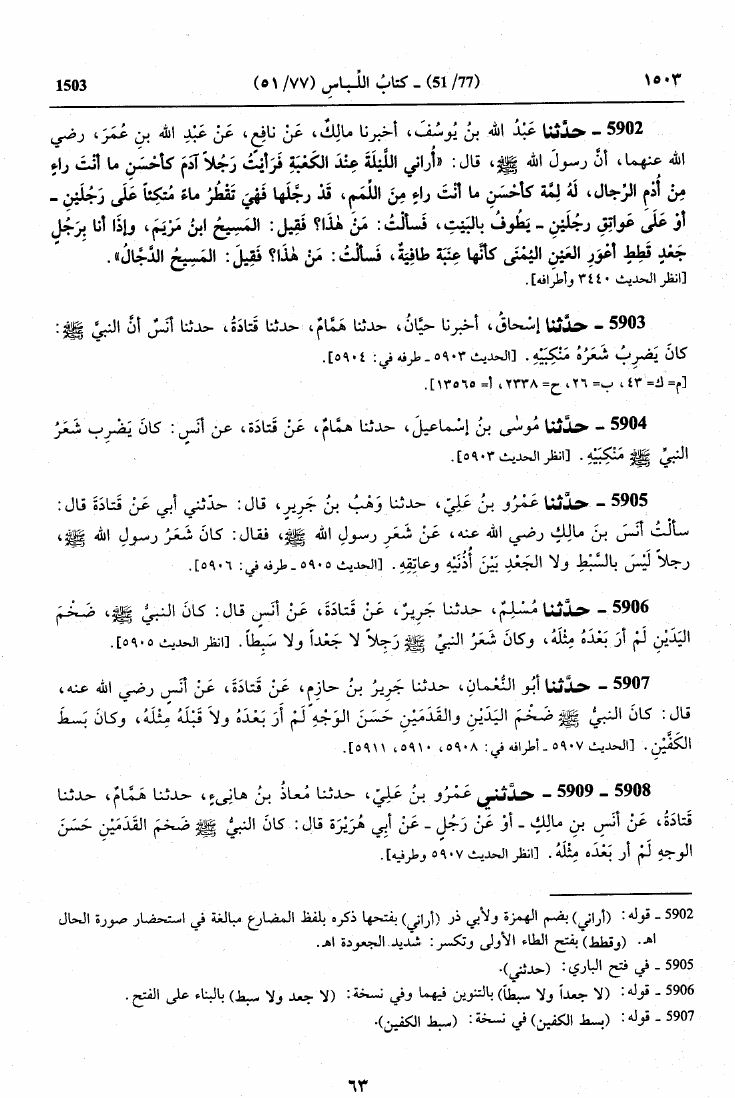 ١٥٠٣ (51/77) ـ كتابُ اللِّباسِ (٥١/٧٧) 1503
5902 ـ حدَّثنا عَبْدُ الله بنُ يُوسُفَ، أخبرنا مالِكٌ، عَنْ نافِعٍ، عَنْ عَبْدِ الله بنِ عُمَرَ، رضي
الله عنهما، أنَّ رسولَ الله ﷺ، قال: «أُراني اللَّيْلَةَ عِنْدَ الكَعْبَةِ فَرَأيْتُ رَجُلاً آدَمَ كأحْسَنِ ما أنْتَ راءٍ
مِنْ أُدْمِ الرِّجال، لَهُ لِمَّة كأحْسَنِ ما أنْتَ راءٍ مِنَ اللِّمَمِ، قَدْ رجَّلَها فَهْيَ تَقْطُرُ ماءً مُتكِئاً عَلَى رَجُلَيْنِ ـ
أوْ عَلَى عَواتِقِ رجُلَيْنِ ـ يَطُوفُ بالبَيْتِ، فَسألْتُ: مَنْ هٰذا؟ فَقِيل: المَسِيحُ ابنُ مَرْيَمَ، وإذَا أنا بِرَجُلٍ
جَعْدٍ قَطِطٍ أعْوَرِ العَيْنِ اليُمْنَى كأنَّها عِنَبَة طافِيَةٌ، فَسألْتُ: مَنْ هٰذا؟ فَقِيلَ: المَسِيحُ الدَّجَّالُ».
[انظر الحديث ٣٤٤٠ وأطرافه].
5903 ـ حدَّثنا إسْحاقُ، أخبرنا حبَّانُ، حدثنا هَمَّامٌ، حدثنا قَتادَةُ، حدثنا أنَسٌ أنَّ النبيَّ ﷺ:
كانَ يَضرِبُ شَعَرُهُ مَنْكِبَيْهِ. [الحديث ٥٩٠٣ ـ طرفه في: ٥٩٠٤].
[م= ك= ٤٣، ب= ٢٦، ح= ٢٣٣٨، أ= ١٣٥٦٥].
5904 ـ حدَّثنا مُوسٰى بنُ إسْماعيلَ، حدثنا همَّامٌ، عَنْ قَتادَة، عن أنَسٍ: كانَ يَضْرِب شَعَرُ
النبيِّ ﷺ مَنْكِبَيْهِ. [انظر الحديث ٥٩٠٣].
5905 ـ حدَّثنا عَمْرُو بنُ عَلِيّ، حدثنا وَهْبُ بنُ جَرِيرٍ، قال: حدّثني أبي عَنْ قَتادَةَ قال:
سألْتُ أنَسَ بنَ مالِكٍ رضي الله عنه، عَنْ شَعَرِ رسولِ الله ﷺ، فقال: كانَ شَعَرُ رسولِ الله ﷺ،
رجلاً لَيْسَ بالسَّبْطِ ولا الجَعْدِ بَيْنَ أُذُنَيْهِ وعاتِقِهِ. [الحديث ٥٩٠٥ ـ طرفه في: ٥٩٠٦].
5906 ـ حدَّثنا مُسْلِمٌ، حدثنا جَرِيرٌ، عَنْ قَتادَةَ، عَنْ أنَسٍ قال: كانَ النبيُّ ﷺ، ضَخْمَ
اليَدَيْنِ لَمْ أرَ بَعْدَهُ مِثْلَهُ، وكانَ شَعَرُ النبيِّ ﷺ رَجِلاً لا جَعْداً ولا سَبِطاً. [انظر الحديث ٥٩٠٥].
5907 ـ حدَّثنا أبُو النُّعْمانِ، حدثنا جَرِيرُ بنُ حازِمٍ، عَنْ قَتادَةَ، عَنْ أنَسٍ رضي الله عنه،
قال: كانَ النبيُّ ﷺ ضَخْمَ اليَدَيْنِ والقَدَمَيْنِ حَسَنَ الوَجْهِ لَمْ أرَ بَعْدَهُ ولاَ قَبْلَهُ مِثْلَهُ، وكانَ بَسطَ
الكَفَّيْنِ. [الحديث ٥٩٠٧ ـ أطرافه في: ٥٩٠٨، ٥٩١٠، ٥٩١١].
5908 ـ 5909 ـ حدَّثني عَمْرُو بنُ عَلِيّ، حدثنا مُعاذُ بنُ هانِىءٍ، حدثنا هَمَّامٌ، حدثنا
قَتادَةُ، عَنْ أنَسِ بنِ مالِكٍ ـ أوْ عَنْ رَجُلٍ ـ عَنْ أبي هُرَيْرَة قال: كانَ النبيُّ ﷺ ضَخمَ القَدَمَيْنِ حَسَنَ
الوجهِ لَمْ أر بَعْدَه مِثْلَهُ. [انظر الحديث ٥٩٠٧ وطرفيه].
5902 ـ قوله: (أراني) بضم الهمزة ولأبي ذر (أراني) بفتحها ذكره بلفظ المضارع مبالغة في استحضار صورة الحال
اهـ. (وقطط) بفتح الطاء الأولى وتكسر: شديد الجعودة اهـ.
5905 ـ في فتح الباري: (حدثني).
5906 ـ قوله: (لا جعداً ولا سبطاً) بالتنوين فيهما وفي نسخة: (لا جعد ولا سبط) بالبناء على الفتح.
5907 ـ قوله: (بسط الكفين) في نسخة: (سبط الكفين).
٦٣